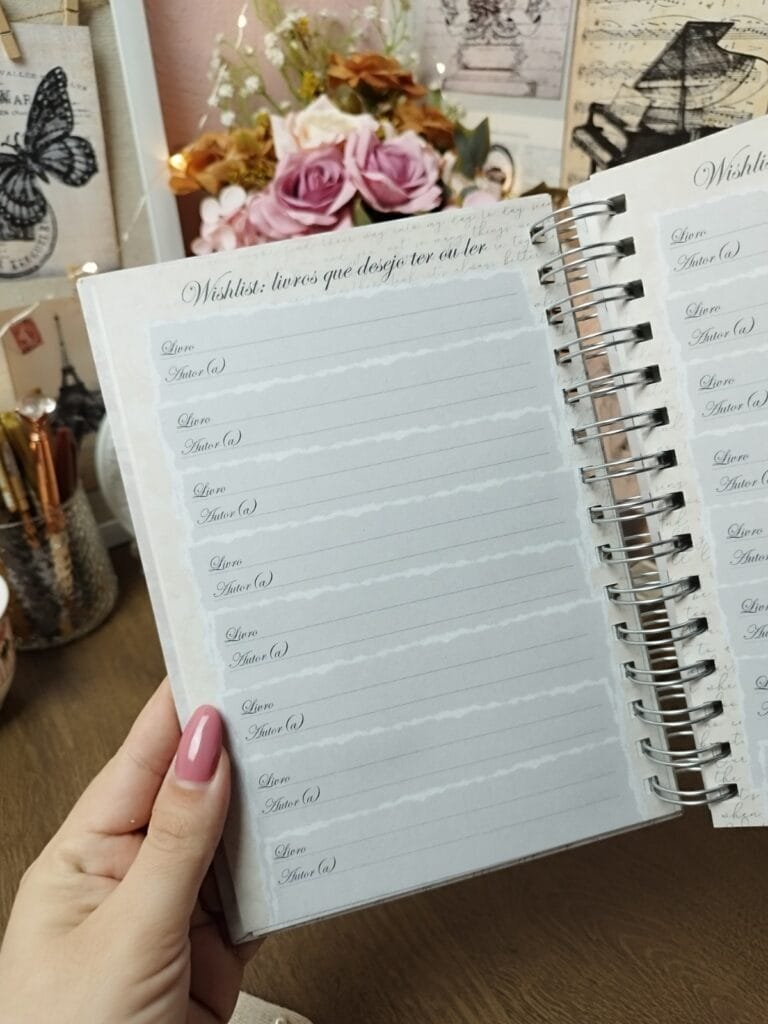 Wishlist: livros que desejo ter ou ler
Livro
Autor(a)
Livro
Autor(a)
Livro
Autor(a)
Livro
Autor(a)
Livro
Autor(a)
Livro
Autor(a)
Livro
Autor(a)
Livro
Autor(a)
Livro
Autor(a)
Livro
Autor(a)
Livro
Livro
Livro
Livro